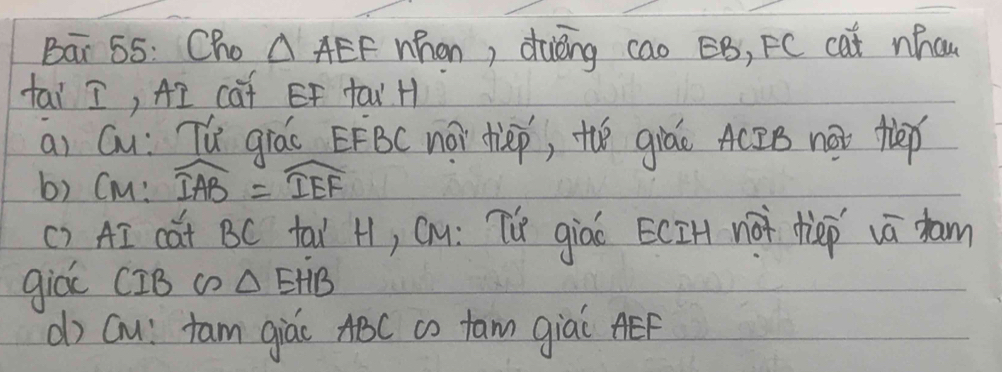 Bài 55: Cho Δ AEF nhọn, đường cao EB, FC cắt nhau
tại I, AI cắt EF tại H
a) CM: Tứ giác EFBC nội tiếp, tứ giác ACIB nội tiếp
b) CM: \widehat{IAB} = \widehat{IEF}
c) AI cắt BC tại H, CM: Tứ giác ECIH nội tiếp và tam
giác CIB ∽ Δ EHB
d) CM: tam giác ABC ∽ tam giác AEF